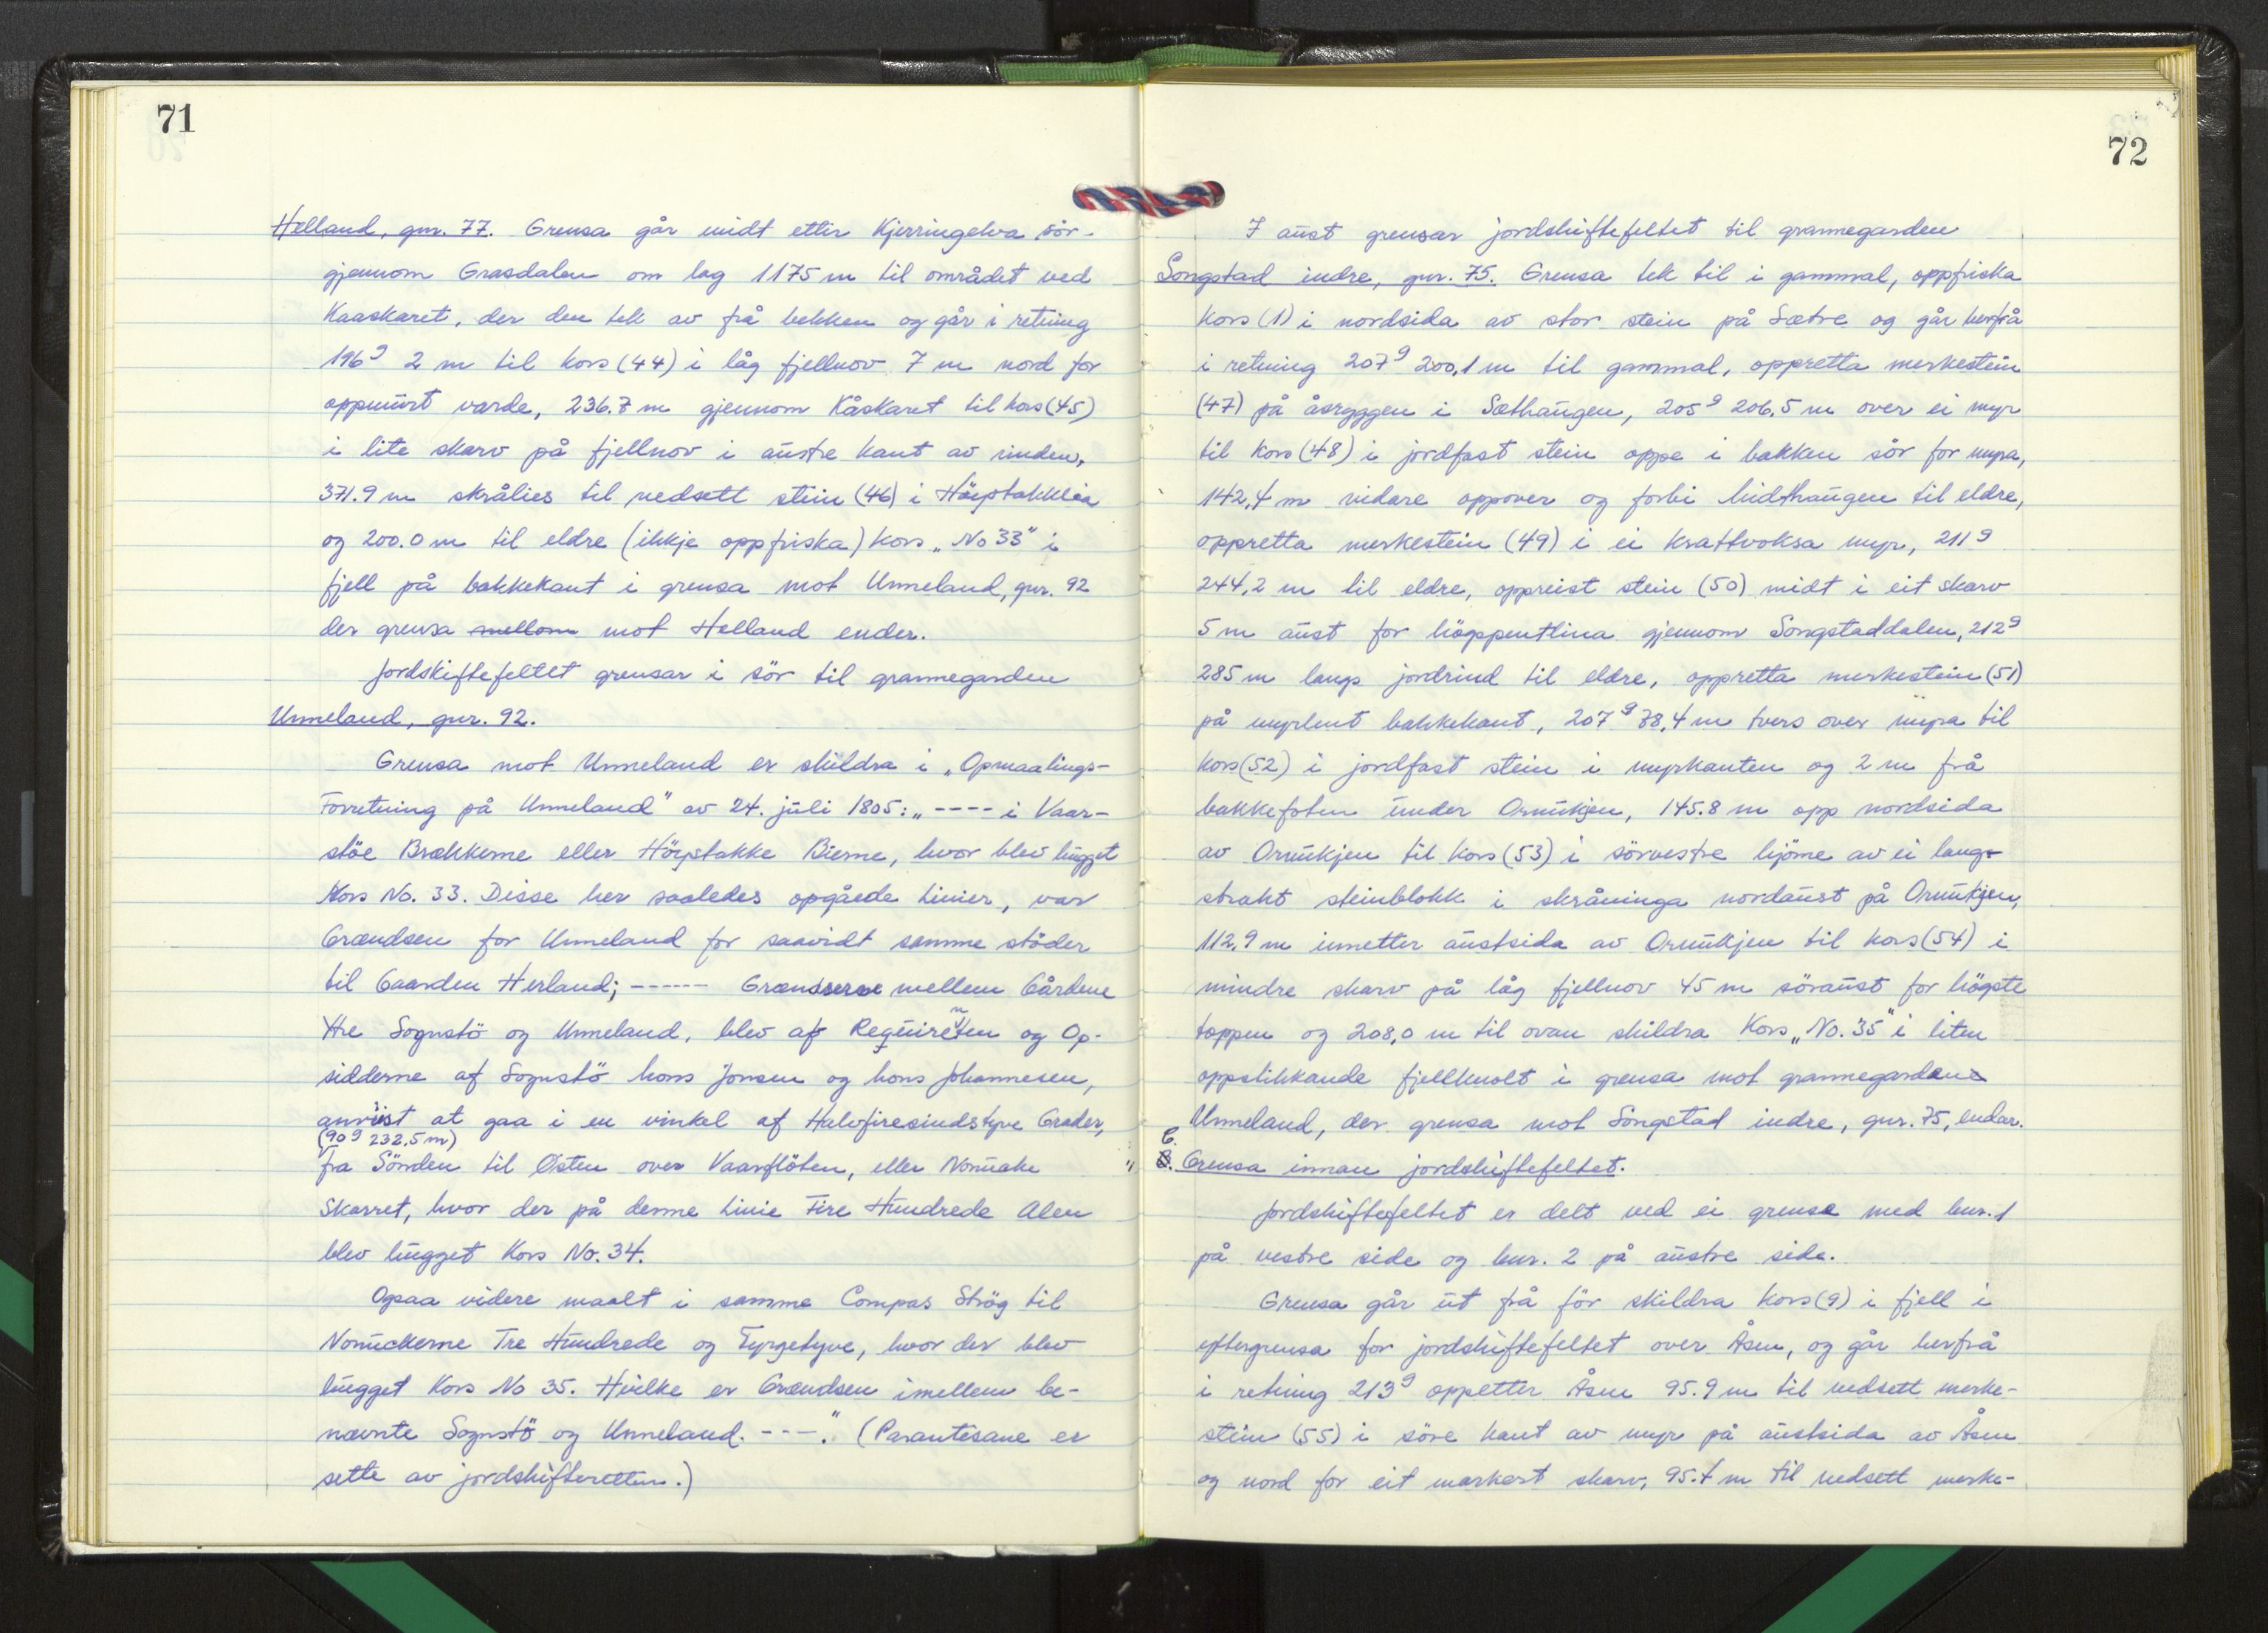 71
Helland, gnr. 77. Grensa går midt etter Kjerringelva sör-
gjennom Grasdalen om lag 1175 m til området ved
Kaaskaret, der den tek av frå bekken og går i retning
196g 2 m til kors (44) i låg fjellnov 7 m nord for
oppmurt varde, 236.7 m gjennom Kåskaret til kors (45)
i lite skarv på fjellnov i austre kant av rinden,
371.9 m skrålies til nedsett stein (46) i Höystakklia
og 200.0 m til eldre (ikkje oppfriska) kors „No 33" i
fjell på bakkekant i grensa mot Unneland, gnr. 92
der grensa mellom mot Helland ender.
Jordskiftefeltet grensar i sör til grannegarden
Unneland, gnr. 92.
Grensa mot Unneland er skildra i „Opmaalings-
Forretning på Unneland" av 24. juli 1805: „---- i Vaar-
stöe Brækkerne eller Höystakke Bierne, hvor blev hugget
Kors No. 33. Disse her saaledes opgåede Linier, var
Grændsen for Unneland for saavidt samme stöder
til Gaarden Herland; ------ Grændserne mellem Gårdene
Ytre Sognstö og Unneland, blev af Requirenten og Op-
sidderne af Sognstö hans Jonsen og hans Johannesen,
anviist at gaa i en vinkel af Halvfiresindstyve Grader,
(90g 232,5 m)
fra Sönden til Østen over Vaarflöten, eller Nonuake
Skarret, hvor der på denne Linie Fire Hundrede Alen
blev hugget Kors No. 34.
Ogsaa videre maalt i samme Compas Strög til
Nonuckerne Tre Hundrede og Fyrgetyve, hvor der blev
hugget Kors No 35. Hvilke er Grændsen imellem be-
nævnte Sognstö og Unneland. ---." (Parantesane er
sette av jordskifteretten.)
72
I aust grensar jordskiftefeltet til grannegarden
Songstad indre, gnr. 75. Grensa tek til i gammal, oppfriska
kors (1) i nordsida av stor stein på Sætre og går herfrå
i retning 207g 200,1 m til gammal, oppretta merkestein
(47) på åsryggen i Sæthaugen, 205g 206,5 m over ei myr
til kors (48) i jordfast stein oppe i bakken sör for myra,
142,4 m vidare oppover og forbi Midthaugen til eldre,
oppretta merkestein (49) i ei krattvoksa myr, 211g
244,2 m til eldre, oppreist stein (50) midt i eit skarv
5 m aust for högspentlina gjennom Songstaddalen, 212g
285 m langs jordrind til eldre, oppretta merkestein (51)
på myrlent bakkekant, 207g 78,4 m tvers over myra til
kors (52) i jordfast stein i myrkanten og 2 m frå
bakkefoten under Ornukjen, 145.8 m opp nordsida
av Ornukjen til kors (53) i sörvestre hjörne av ei lang-
strakt steinblokk i skråninga nordaust på Ornukjen,
112,9 m innetter austsida av Ornukjen til kors (54) i
mindre skarv på låg fjellnov 45 m söraust for högste
toppen og 208,0 m til ovan skildra Kors „No. 35" i liten
oppstikkande fjellknolt i grensa mot grannegarden
Unneland, der grensa mot Songstad indre, gnr. 75, endar.
C. Grensa innan jordskiftefeltet.
Jordskiftefeltet er delt ved ei grense med bnr. 1
på vestre side og bnr. 2 på austre side.
Grensa går ut frå för skildra kors (9) i fjell i
yttergrensa for jordskiftefeltet over Åsen, og går herfrå
i retning 213g oppetter Åsen 95.9 m til nedsett merke-
stein (55) i söre kant av myr på austsida av Åsen
og nord for eit markert skarv, 95.4 m til nedsett merke-